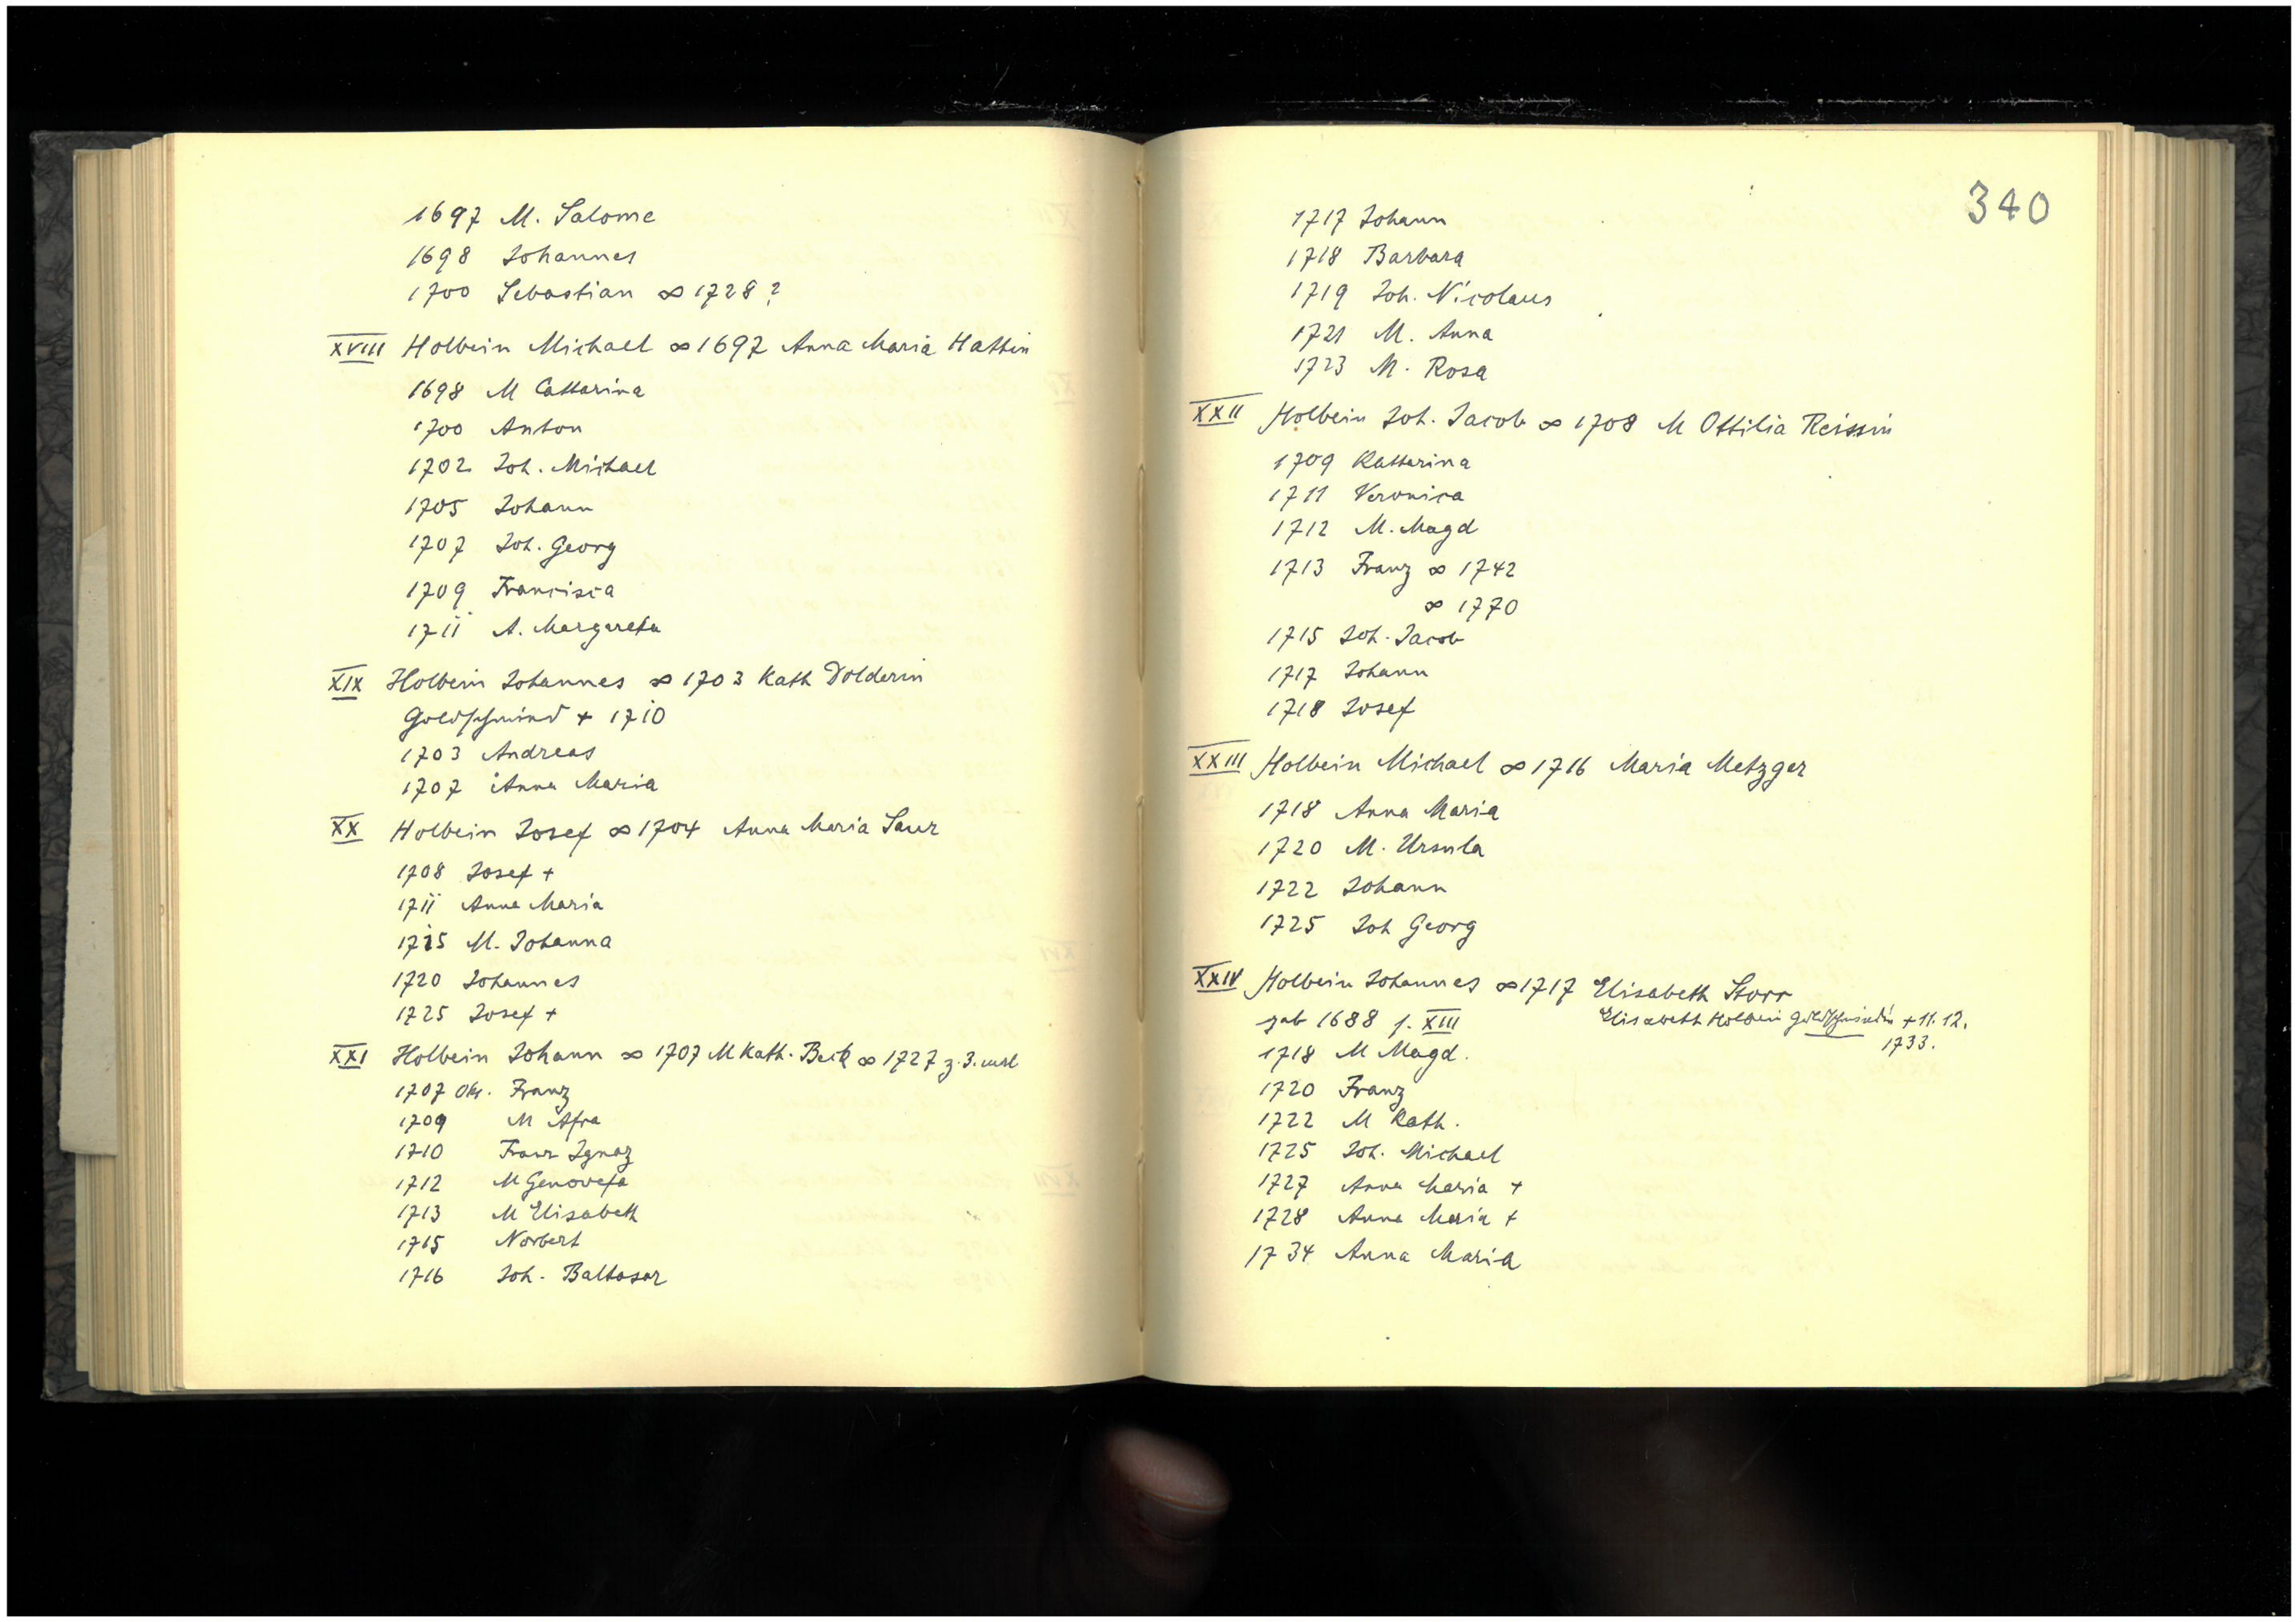 1697 M. Salome
1698 Johannes
1700 Sebastian ∞ 1728?
XVIII Holbein Michael ∞ 1697 Anna Maria Hattin
1698 M Catharina
1700 Anton
1702 Joh. Michael
1705 Johann
1707 Joh. Georg
1709 Francisca
1711 A. Margareta
XIX Holbein Johannes ∞ 1703 Kath Dolderin
Goldschmid + 1710
1703 Andreas
1707 Anna Maria
XX Holbein Josef ∞ 1704 Anna Maria Saur
1708 Josef +
1711 Anna Maria
1715 M. Johanna
1720 Johannes
1725 Josef +
XXI Holbein Johann ∞ 1707 M Kath. Beck ∞ 1727 z. 3.
1707 Okt. Franz
1709 M Afra
1710 Franz Ignaz
1712 M Genovefa
1713 M Elisabeth
1715 Norbert
1716 Joh. Baltasar
340
1717 Johann
1718 Barbara
1719 Joh. Nicolaus
1721 M. Anna
1723 M. Rosa
XXII Holbein Joh. Jacob ∞ 1708 M Ottilia Reissin
1709 Katharina
1711 Veronica
1712 M. Magd
1713 Franz ∞ 1742
∞ 1770
1715 Joh. Jacob
1717 Johann
1718 Josef
XXIII Holbein Michael ∞ 1716 Maria Metzger
1718 Anna Maria
1720 M. Ursula
1722 Johann
1725 Joh Georg
XXIV Holbein Johannes ∞ 1717 Elisabeth Storr
geb 1688 s. XIII Elisabeth Holbein Goldschmidin + 11. 12.
1733.
1718 M Magd.
1720 Franz
1722 M Kath.
1725 Joh. Michael
1727 Anna Maria +
1728 Anna Maria +
1734 Anna Maria